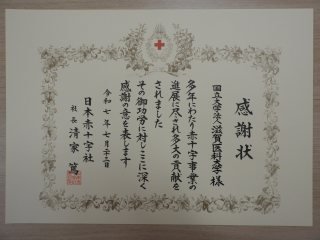 感謝状
国立大学法人滋賀医科大学様
多年にわたり赤十字事業の
進展に尽され多大の貢献を
されました
その御功労に対しここに深く
感謝の意を表します
令和七年七月二十三日
日本赤十字社
社長 清家篤